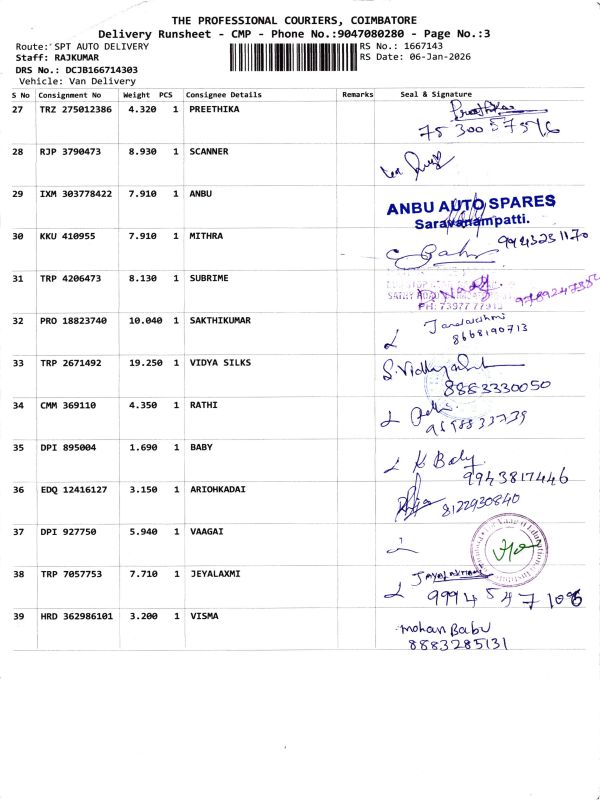 THE PROFESSIONAL COURIERS, COIMBATORE
Delivery Runsheet - CMP - Phone No.:9047080280 - Page No.:3
Route: SPT AUTO DELIVERY
RS No.: 1667143
Staff: RAJKUMAR
RS Date: 06-Jan-2026
DRS No.: DCJB166714303
Vehicle: Van Delivery
S No Consignment No Weight PCS Consignee Details Remarks Seal & Signature
27 TRZ 275012386 4.320 1 PREETHIKA Preethika
75300 57516
28 RJP 3790473 8.930 1 SCANNER
29 IXM 303778422 7.910 1 ANBU
ANBU AUTO SPARES
Saravanampatti.
30 KKU 410955 7.910 1 MITHRA 9943231170
31 TRP 4206473 8.130 1 SUBRIME
PH: 73977 77945
32 PRO 18823740 10.040 1 SAKTHIKUMAR
8668190713
33 TRP 2671492 19.250 1 VIDYA SILKS S. Vidhya
8883330050
34 CMM 369110 4.350 1 RATHI
9698833739
35 DPI 895004 1.690 1 BABY K Baby
9943817446
36 EDQ 12416127 3.150 1 ARIOHKADAI
8122930840
37 DPI 927750 5.940 1 VAAGAI
38 TRP 7057753 7.710 1 JEYALAXMI
99945 471096
39 HRD 362986101 3.200 1 VISMA
mohan Babu
8883285131